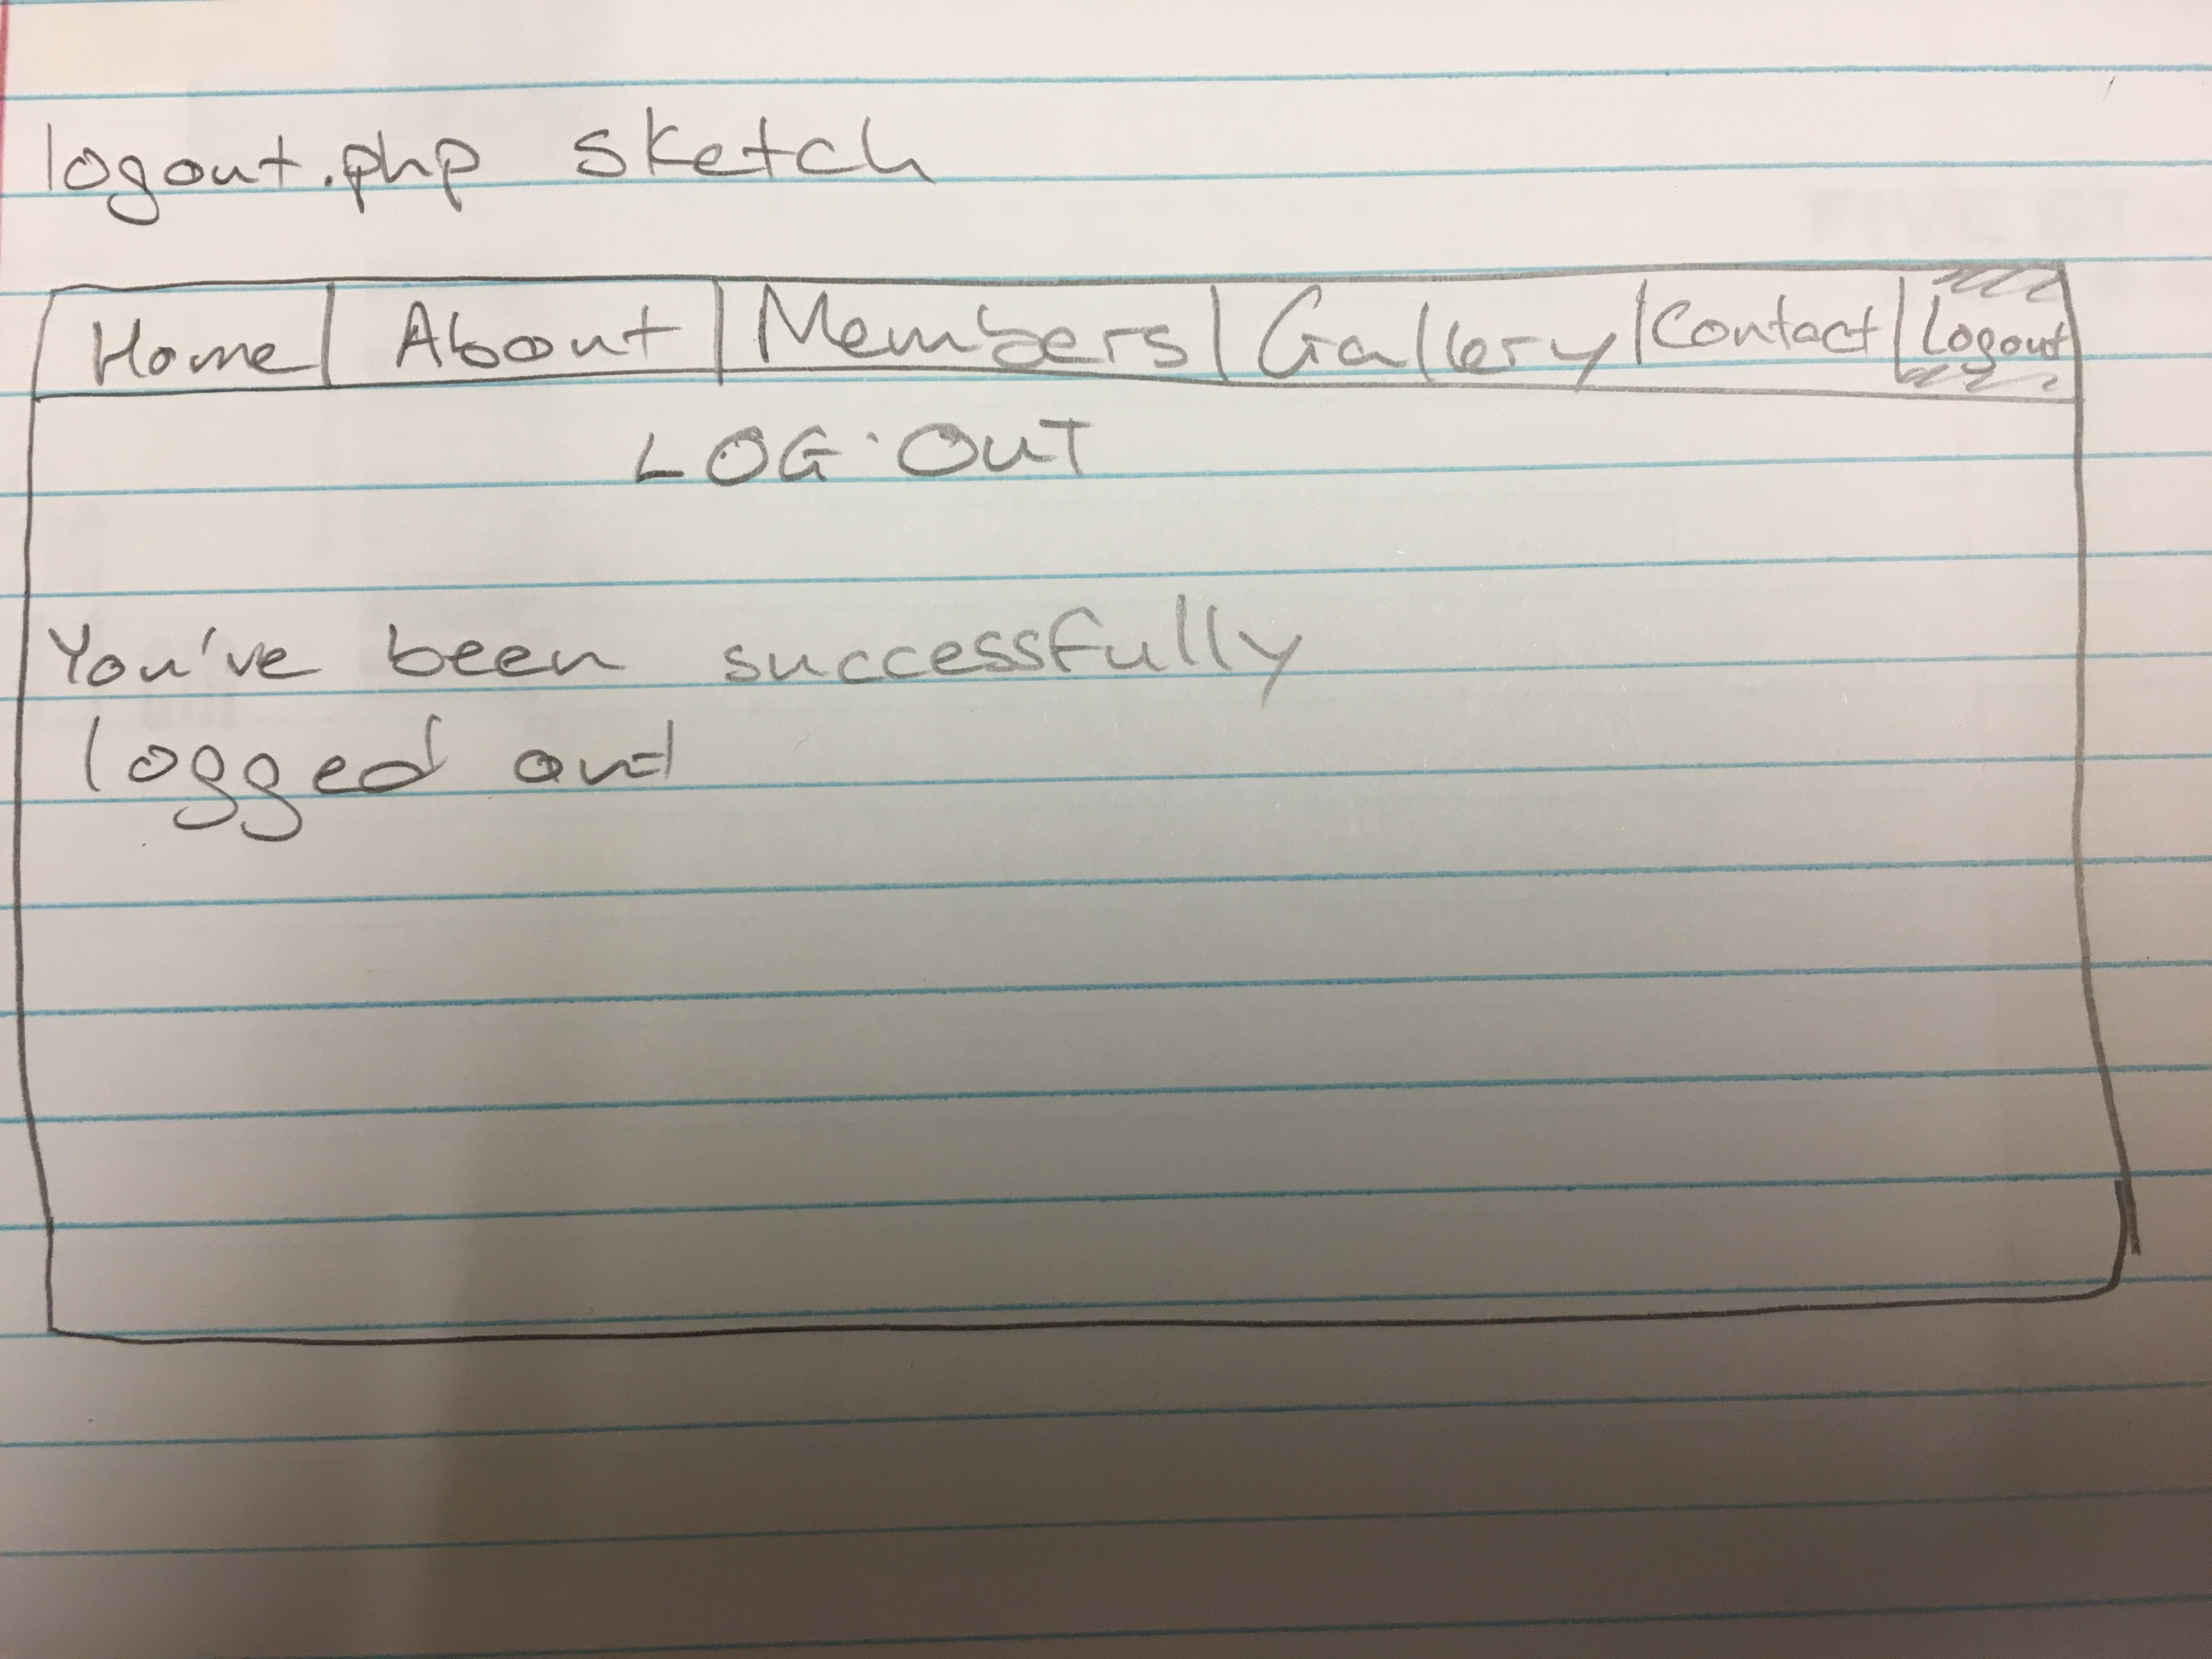 logout.php sketch
Home | About | Members | Gallery | Contact | logout
LOG OUT
You've been successfully
logged out